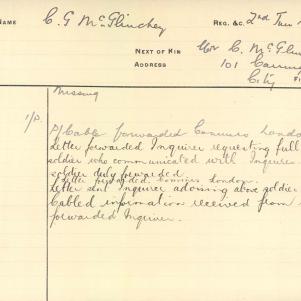 NAME C. G. McGlinchey REG. &C. 2nd Tun
NEXT OF KIN Mr C. McGlin
ADDRESS 101
City
Missing
P/Cable forwarded Comuro London
Letter forwarded Inquirer requesting full
soldier who communicated with Inquirer
soldier duly forwarded.
Letter forwarded London.
Letter sent Inquirer advising above soldier
Cabled information received from
forwarded Inquirer.